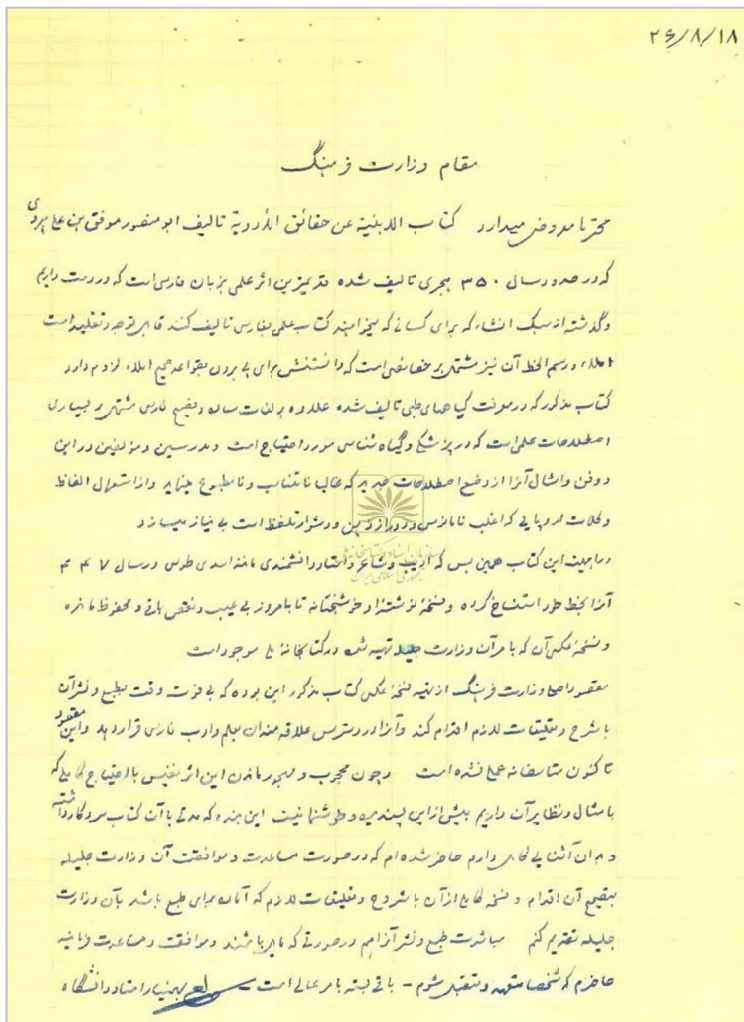 ۲۶/۸/۱۸
مقام وزارت فرهنگ
محترماً معروض میدارد کتاب الابنیة عن حقائق الأدویة تالیف ابو منصور موفق بن علی هروی
که در حدود سال ۳۵۰ هجری تالیف شده قدیمترین اثر علمی بزبان فارسی است که در دست داریم
و گذشته از سبک انشاء که برای کسانی که میخواهند کتاب علمی بفارسی تالیف کنند قابل توجه و تقلید است
املاء و رسم الخط آن نیز مشتمل بر خصائصی است که دانستنش برای پی بردن بقواعد صحیح املاء لزوم دارد
کتاب مذکور که در معرفت گیاه‌های طبی تالیف شده علاوه بر لغات ساده و فصیح فارسی مشتمل بر بسیاری
اصطلاحات علمی است که در پزشکی و گیاه شناسی مورد احتیاج است و مدرسین و مؤلفین در این
دو فن و امثال آنرا از وضع اصطلاحات جدید که غالبا نامتناسب و نامطبوع میباشد و از استعمال الفاظ
و کلمات اروپایی که اغلب نامانوس و دور از ذهن و دشوار تلفظ است بی نیاز میسازد
در اهمیت این کتاب همین بس که ادیب و شاعر و استاد دانشمندی مانند اسدی طوسی در سال ۴۴۷
آنرا بخط خود استنساخ کرده و نسخهٔ نوشتهٔ او خوشبختانه تا بامروز بی عیب و نقص باقی و محفوظ مانده
و نسخهٔ عکسی آن که بامر آن وزارت جلیله تهیه شده در کتابخانهٔ ملی موجود است
مقصود اصلی وزارت فرهنگ از تهیه نسخهٔ عکسی کتاب مذکور این بوده که بی فوت وقت بطبع و نشر آن
با شرح و تعلیقات لازم اقدام کند و آنرا در دسترس علاقه مندان بعلم و ادب فارسی قرار دهد و این مقصود
تا کنون متاسفانه عملی نشده است و چون محجوب و مهجور ماندن این اثر نفیس با احتیاج کاملی که
بامثال و نظایر آن داریم بیش از این پسندیده و خوشنما نیست این بنده که مدتی با آن کتاب سر و کار داشته
و بدان آشنایی کامل دارم حاضر شده‌ام که در صورت مساعدت و موافقت آن وزارت جلیله
بتصحیح آن اقدام و نسخه کاملی از آن با شروح و تعلیقات لازم که آماده برای طبع باشد بآن وزارت
جلیله تقدیم کنم مباشرت طبع و نشر آنرا هم در صورتی که مایل باشند و موافقت و مساعدت فرمایند
حاضرم که شخصا متعهد و متقبل شوم - باقی بسته بامر عالی است - بهمنیار استاد دانشگاه